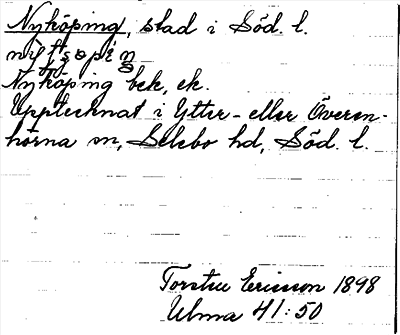 Nyköping, stad i Söd. l.
Nyköping bek, ek.
Upptecknat i Ytter- eller Överen-
hörna sn, Selebo hd, Söd. l.
Torsten Ericsson 1898
Ulma 41:50